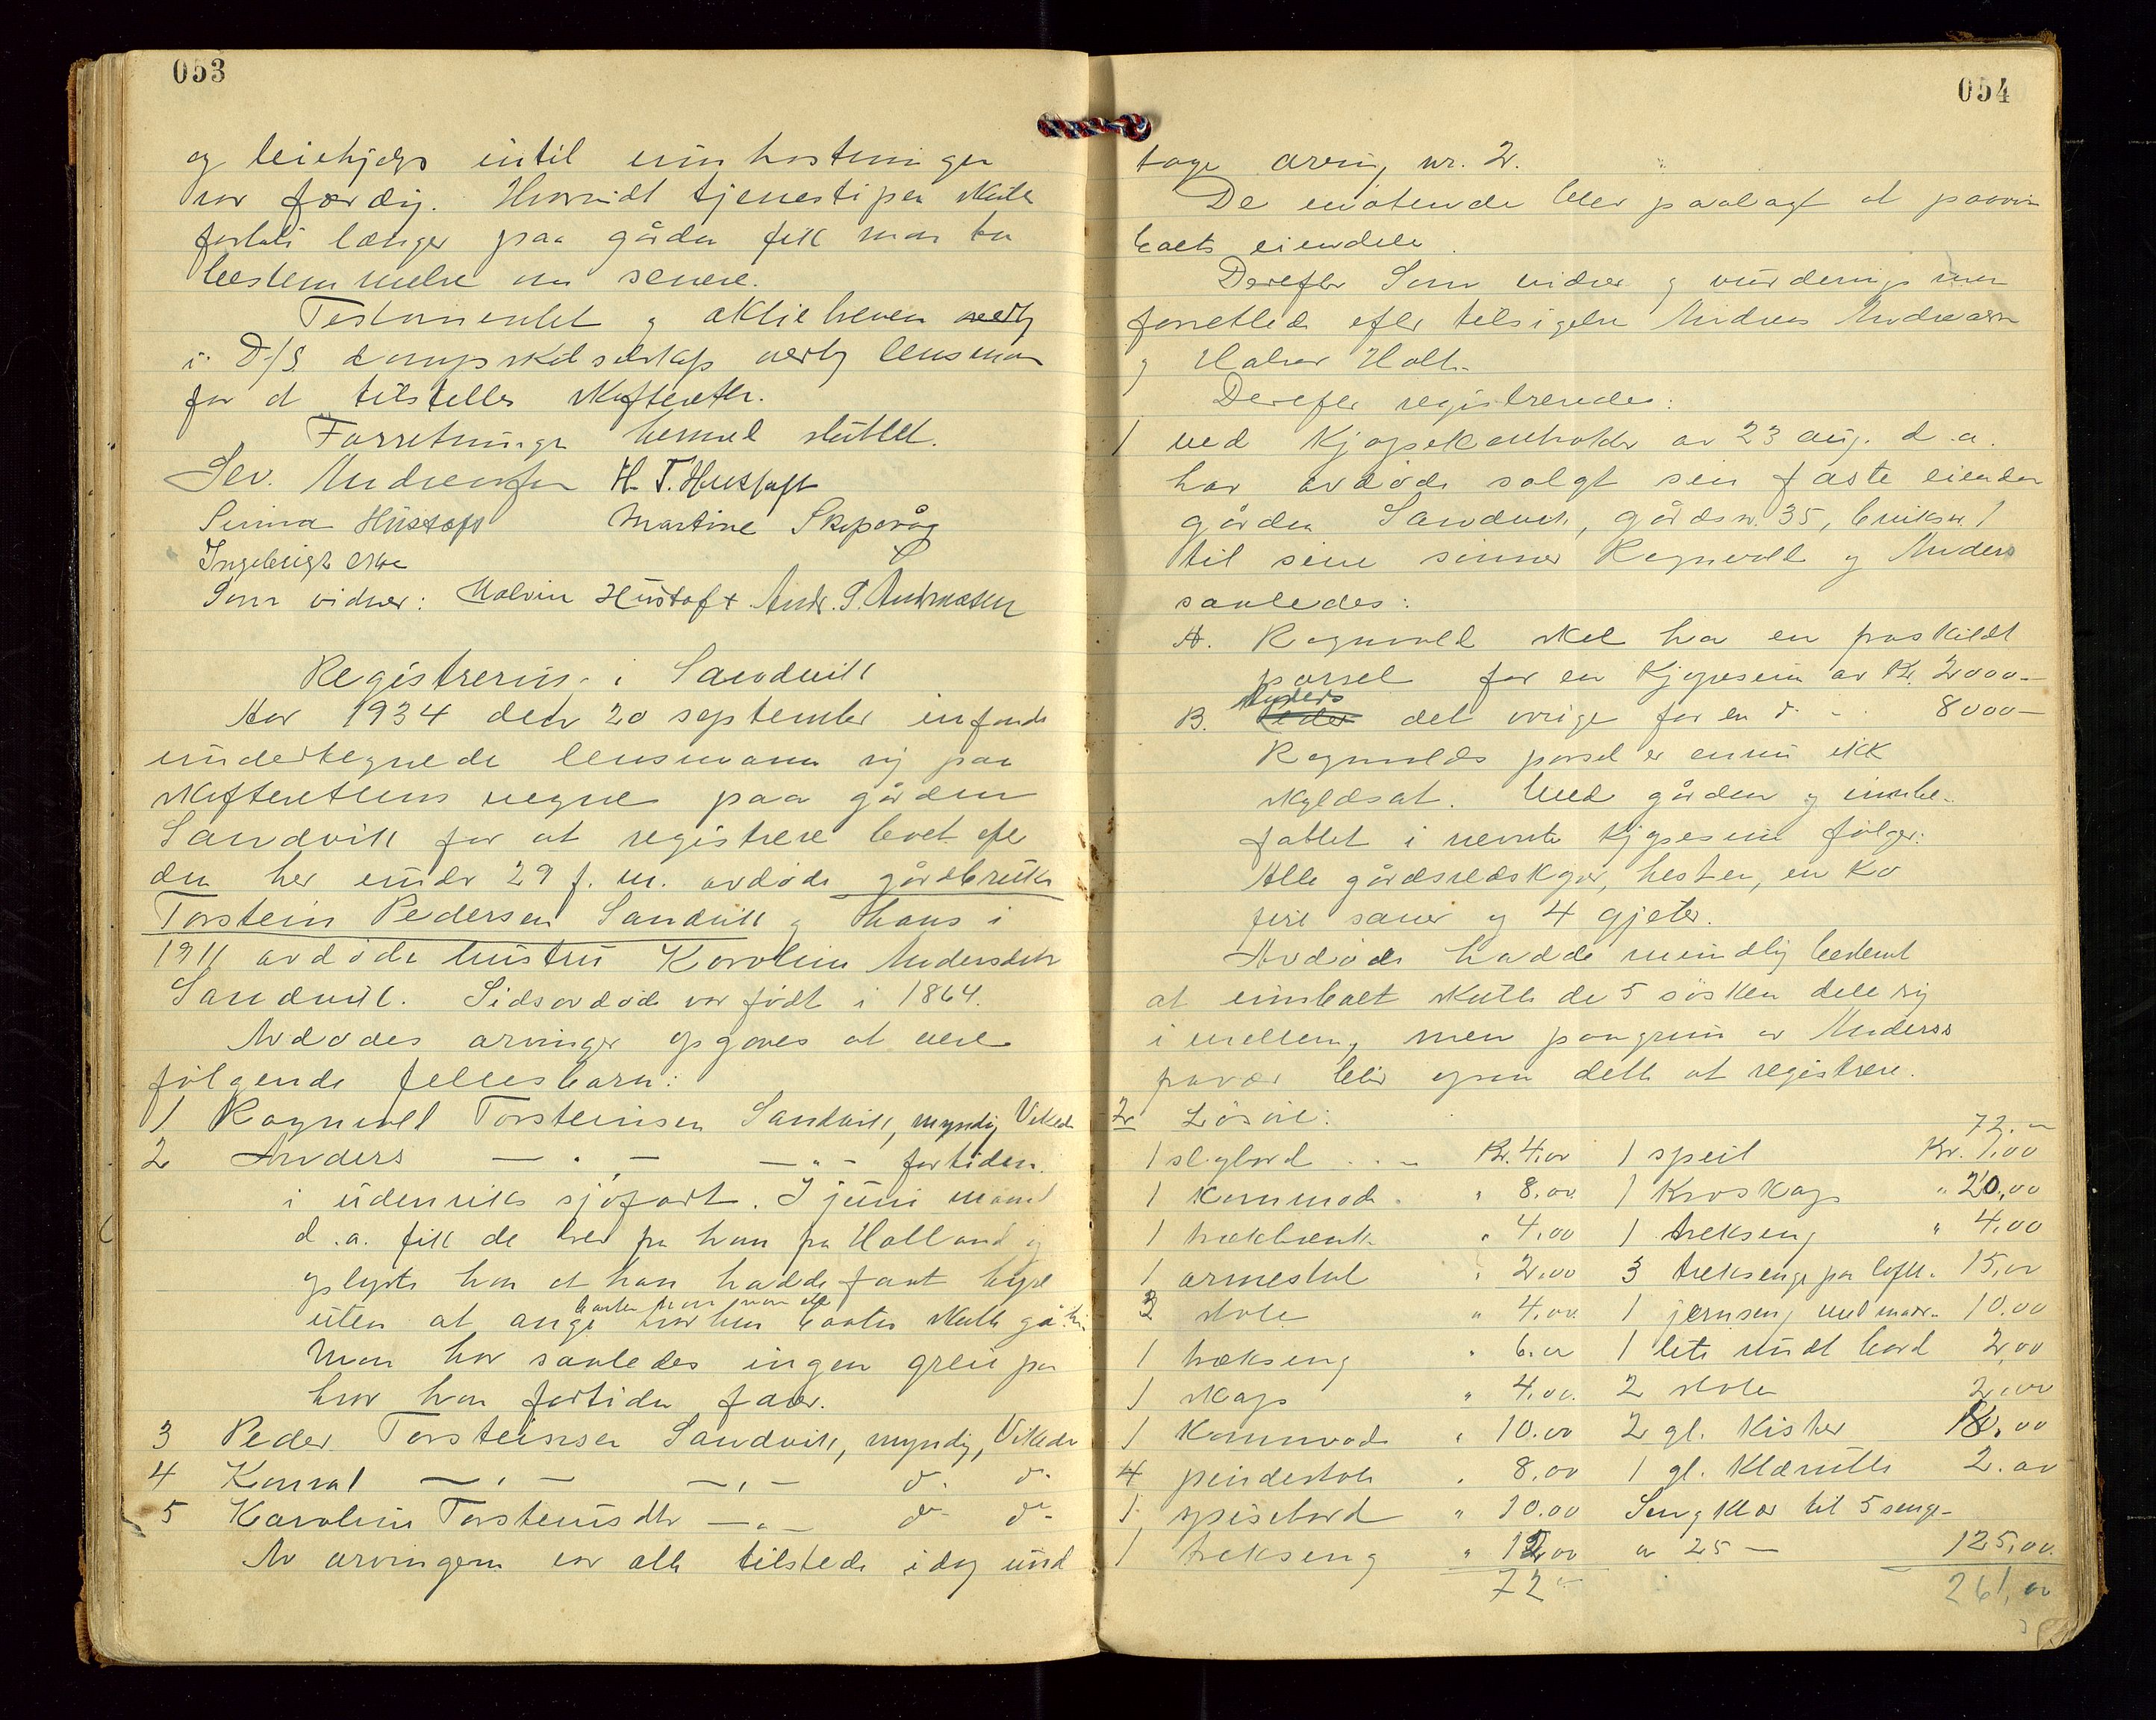 053
og leiehjelp intil innhøstningen
var færdig. Hvorvidt tjenestepen skulle
fortsætte længer paa gården fikk man ta
bestemmelse om senere.
Testamentet og aktiebreven
i D/S dampskibsselskap lensman
for at tilstilles skifteretten.
Forretningen hermed sluttet.
Sev. Andreassen H. T. Hustoft
Sunna Hustoft Martine Skeporåg
Ingebrigt
Som vidner: Malvin Hustoft Andr. S. Andreasen
Registrering i Sandvik
Aar 1934 den 20 september innfandt
undertegnede lensmann sig paa
skifterettens vegne paa gården
Sandvik for at registrere boet efter
den her under 29 f. m. avdøde gårdbruker
Torstein Pedersen Sandvik og hans i
1911 avdøde hustru Karoline Andersdtr
Sandvik. Sidstavdøde var født i 1864.
Avdødes arvinger opgaves at være
følgende fellesbarn:
1 Ragnvald Torsteinsen Sandvik, myndig Vikedal
2 Anders — " — — " — fortiden
i utenriks sjøfart. I juni måned
d. a. fikk de brev fra ham fra Holland og
oplyste han at han hadde faat hyre
uten at angi hvorhen baaten skulle gå
Man har saaledes ingen greie paa
hvor han fortiden farer.
3 Peder Torsteinsen Sandvik, myndig, Vikedal
4 Konrad — " — — " — do do
5 Karoline Torsteinsdtr — " — do do
Av arvingene var alle tilstede idag und
054
tage arving nr. 2.
De møtende blev paalagt at paavise
boets eiendele.
Derefter Som vidner og vurderingsmen
forrettede efter tilsigelse Andreas Andreasen
og Halvor Holt.
Derefter registreredes:
1 Ved kjøpekontrakt av 23 aug. d. a.
har avdøde solgt sin faste eiendom
gården Sandvik, gårdsnr. 35, bruksnr. 1
til sine sønner Ragnvald og Anders
saaledes:
A. Ragnvald skal ha en fraskildt
parsel for en kjøpesum av Kr. 2000 —
B. Anders det øvrige for en do - 8000 —
Ragnvalds parsel er ennu ikke
skyldsat. Med gården og innbe-
fattet i nevnte kjøpesum følger:
Alle gårdsredskaper, hesten, en ko
fire sauer og 4 gjeter.
Avdøde hadde mundlig bestemt
at innboet skulle de 5 søsken dele sig
imellem, men paagrunn av Anderss
fravær blir ogsaa dette at registrere.
2 Løsøre:
72. —
1 slagbord Kr. 4.00 1 speil Kr. 1,00
1 kommode " 8.00 1 Kroskap " 20,00
1 trækbænk " 4.00 1 trekseng " 4.00
1 armestol " 2,00 3 treksenge paa loftet. 15,00
3 stole " 4,00 1 jernseng med madr. 10.00
1 trækseng " 6.00 1 lite rundt bord 2,00
1 skap " 4.00. 2 stole 2,00
1 Kommode " 10.00 2 gl. kister
4 pindestole " 8.00 1 gl. Klærulle 2.00
1 spisebord " 10.00 Sengklær til 5 senge-
1 trekseng " 12,00 a 25 — 125,00.
72 — 261,00